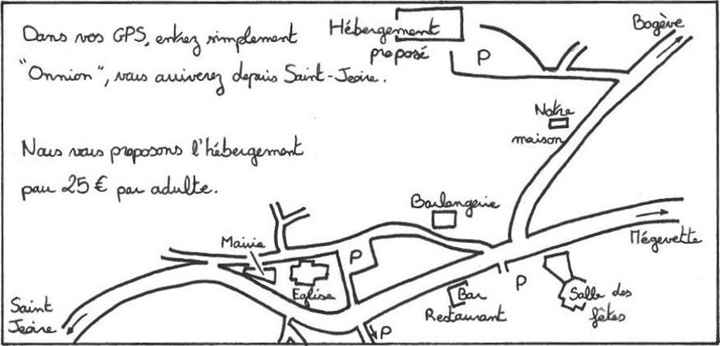 Dans vos GPS, entrez simplement
"Onnion", vous arriverez depuis Saint-Jeoire.
Nous vous proposons l'hébergement
pau 25 € par adulte.
Hébergement
proposé
P
Bogève
Notre
maison
Boulangerie
Mairie
Eglise
P
Mégevette
P
Bar
Restaurant
Salle des
fêtes
Saint
Jeoire
P